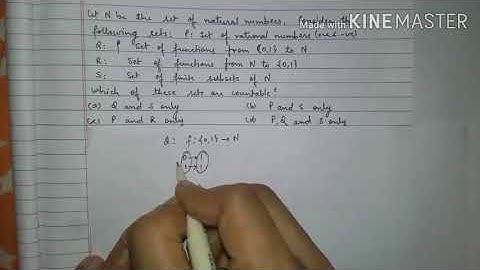 Made with KINEMASTER
Let N be the set of natural numbers. Consider the
following sets: P: Set of rational numbers (+ve & -ve)
Q: Set of functions from {0,1} to N
R: Set of functions from N to {0,1}
S: Set of finite subsets of N
Which of these sets are countable?
(a) Q and S only (b) P and S only
(c) P and R only (d) P, Q and S only
Q: f: {0,1} → N
0 1
1 1